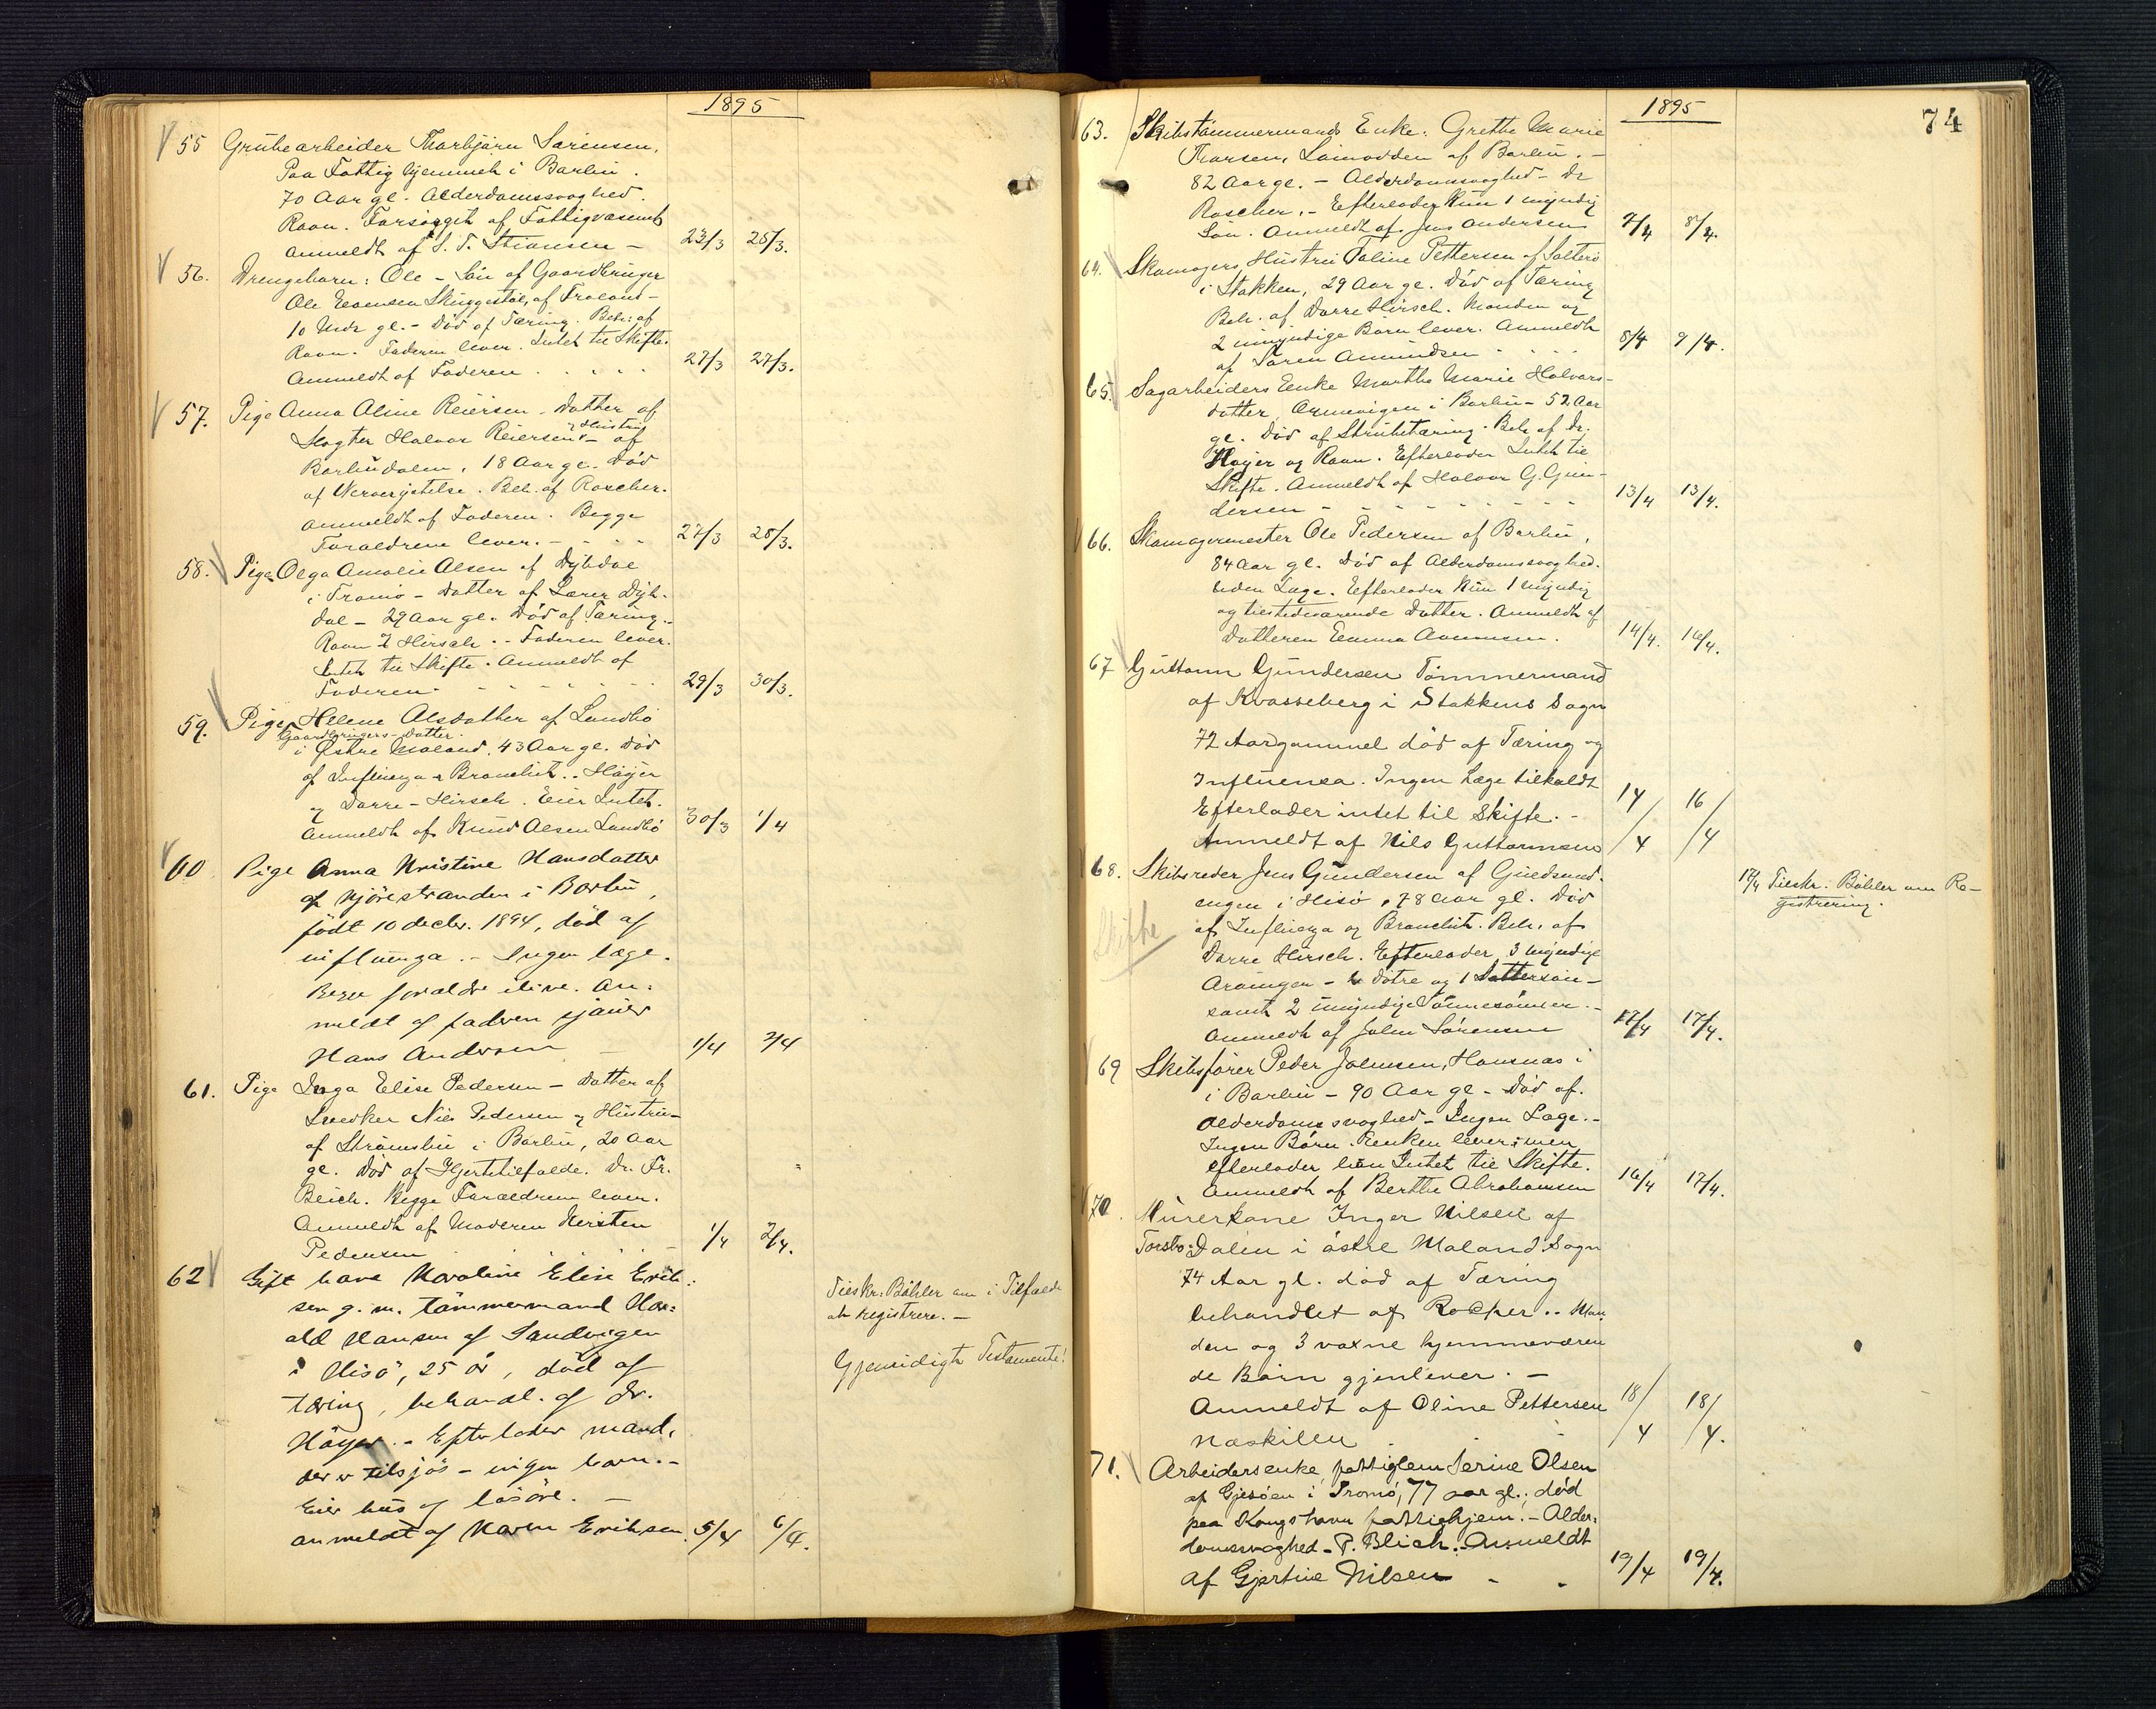 1895
55 Grubearbeider Thorbjørn Sørensen,
Paa Fattighjemmet i Barbu.
70 Aar gl. Alderdomssvaghed.
Ravn. Forsørget af Fattigvæsenet
Anmeldt af S. T. Stiansen – 23/3 25/3.
56. Drengebarn: Ole – Søn af Gaardbruger
Ole Evensen Skuggestøl, af Froland –
10 Mdr gl. – Død af Tæring. Beh: af
Ravn. Faderen lever. Intet til Skifte.
Anmeldt af Faderen . . . . 27/3 27/3.
57. Pige Anna Aline Reiersen – Datter af
Slagter Halvor Reiersen & Hustru – af
Barbudalen, 18 Aar gl. Død
af Nerverystelse. Beh. af Roscher.
Anmeldt af Faderen. Begge
Forældrene lever. – – – 27/3 28/3.
58. Pige Olga Amalie Olsen af Dybdal
i Tromø – Datter af Lærer Dyb-
dal – 29 Aar gl. Død af Tæring. –
Ravn & Hirsch. – Faderen lever.
Intet til Skifte. Anmeldt af
Faderen. – – – – 29/3 30/3.
59. Pige Helene Olsdatter af Lundbø
Gaardbrugers-Datter.
i Østre Moland, 43 Aar gl. Død
af Influenza & Bronchit. . Høyer
og Dorre-Hirsch. Eier Intet.
Anmeldt af Knud Olsen Lundbø 30/3 1/4
60 Pige Anna Kristine Hansdatter
af Kjørestranden i Barbu,
født 10 decbr. 1894, død af
influenza. – Ingen læge.
Begge forældre ilive. An-
meldt af faderen sjauer
Hans Andersen – 1/4 2/4
61. Pige Inga Elise Pedersen – Datter af
Snedker Nils Pedersen & Hustru –
af Strømsbu i Barbu, 20 Aar
gl. Død af Hjertetilfælde. Dr. Fr.
Blich. Begge Forældrene lever.
Anmeldt af Moderen Kirsten
Pedersen 1/4 2/4.
62 Gift kone Karoline Elise Erik-
sen g. m. tømmermand Har-
ald Hansen af Sandvigen
i Hisø, 25 år, død af
tæring, behandl. af dr.
Höyer. – Efterlader mand,
der er tilsjøs – ingen barn. –
Eier hus og løsøre. –
anmeldt af Karen Eriksen 5/4 6/4.
Tilskr. Bøhler om i Tilfælde
at registrere. –
Gjensidigt Testamente!
74
1895
63. Skibstømmermands Enke: Grethe Marie
Thorsen, Saimodden af Barbu. –
82 Aar gl. – Alderdomssvaghed – Dr
Roscher. – Efterlader kun 1 myndig
Søn. Anmeldt af Jens Andersen 7/4 8/4.
64. Skomagers Hustru Taline Pettersen af Salterø
i Stokken, 29 Aar gl. Død af Tæring
Beh. af Dorre Hirsch. Manden og
2 umyndige Børn lever. Anmeldt
af Søren Amundsen . . . . 8/4 9/4.
65. Sagarbeiders Enke Marthe Marie Halvors-
datter, Ormevigen i Barbu – 52 Aar
gl. Død af Strubetæring. Beh af Dr.
Høyer og Ravn. Efterlader Intet til
Skifte. Anmeldt af Halvor G. Gun-
dersen – – – – – 13/4 13/4.
66. Skomagermester Ole Pedersen af Barbu,
84 Aar gl. Død af Alderdomssvaghed.
uden Læge. Efterlader kun 1 myndig
og tilstedeværende Datter. Anmeldt af
Datteren Emma Aanunsen. 14/4. 16/4.
67 Guttorm Gundersen Tømmermand
af Kvasseberg i Stokkens Sogn
72 Aargammel død af Tæring og
Influensa. Ingen Læge tilkaldt
Efterlader intet til Skifte. –
Anmeldt af Nils Guttormsen 14/4 16/4
68. Skibsreder Jens Gundersen af Guldsmed-
engen i Hisø, 78 Aar gl. Død
af Influenza og Bronchit. Beh. af
Dorre Hirsch. Efterlader 3 myndige
Arvinger – 2 Døtre og 1 Dattersøn –
samt 2 umyndige Sønnesønner. –
Anmeldt af John Sørensen 17/4 17/4.
Skifte
17/4 Tilskr. Bøhler om Re-
gistrering.
69 Skibsfører Peder Johnsen, Hausnæs i
i Barbu – 90 Aar gl – Død af
Alderdomssvaghed – Ingen Læge. –
Ingen Børn. Enken lever; men
efterlader hun Intet til Skifte.
Anmeldt af Berthe Abrahamsen 16/4 17/4.
70. Murerkone Inger Nilsen af
Torsbo: Dalen i østre Moland Sogn
74 Aar gl. død af Tæring
behandlet af Rosker. . Man-
den og 3 voxne hjemmeværen
de Børn gjenlever. –
Anmeldt af Oline Pettersen
Næskilen 18/4 18/4.
71. Arbeidersenke, fattiglem Serine Olsen
af Gjesøen i Tromø, 77 aar gl.; død
paa Kongshavn fattighjem. – Alder-
domssvaghed – P. Blich. Anmeldt
af Gjertine Nilsen – – 19/4 19/4.